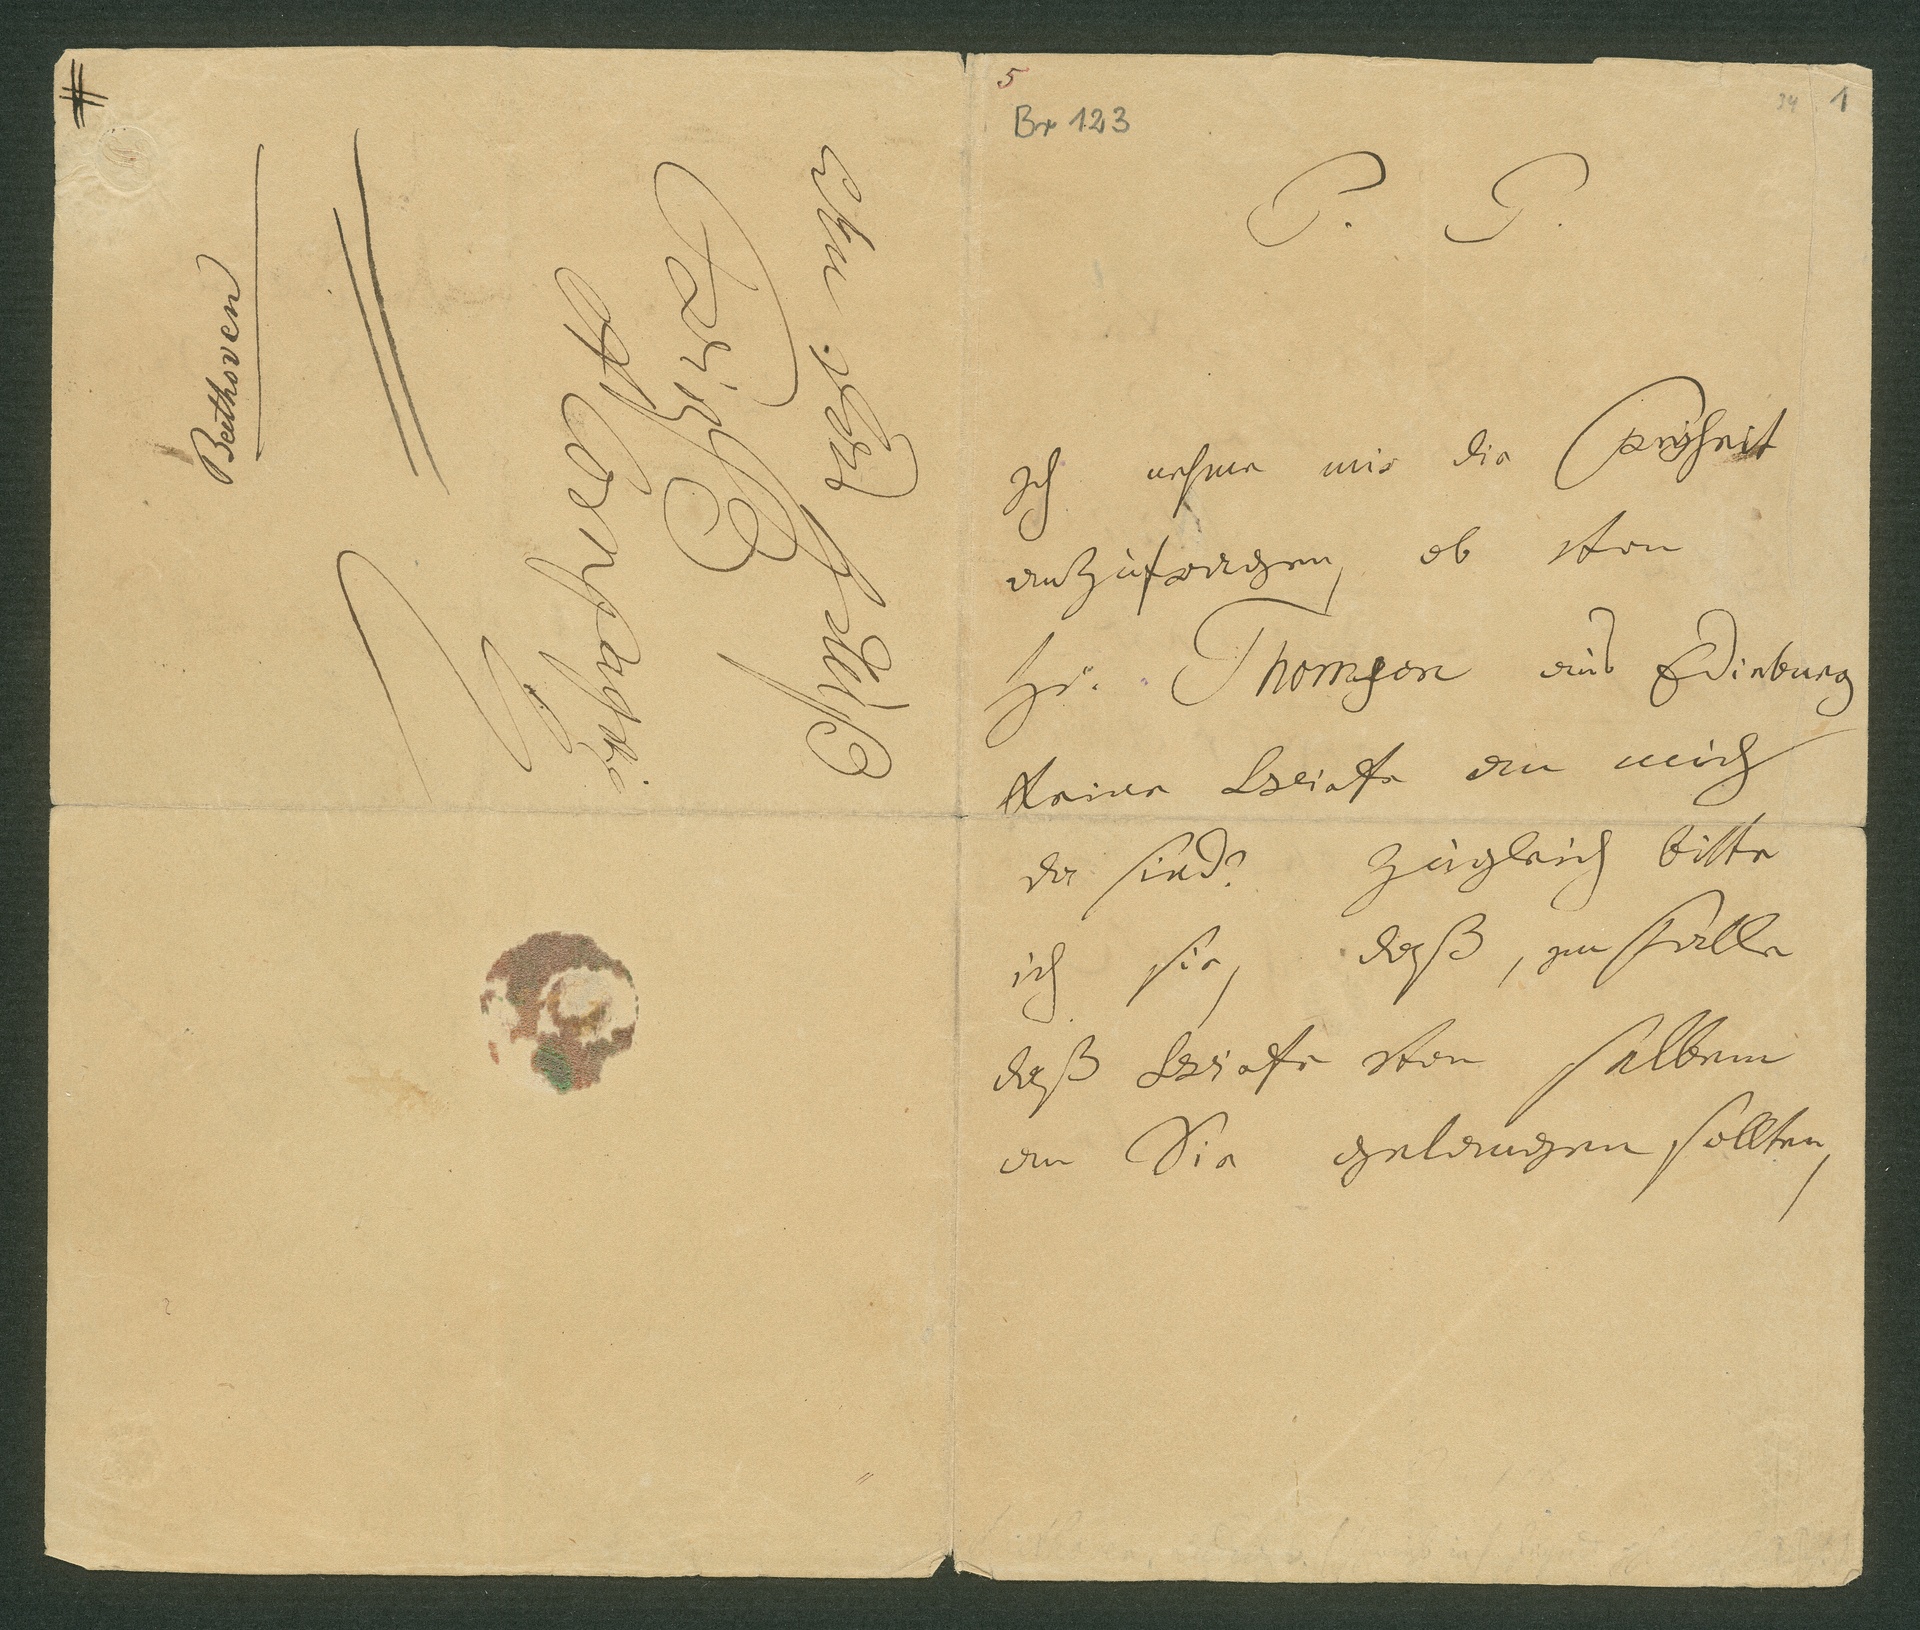 #
Beethoven
An die
5
Br 123
34
1
P. P.
Ich nehme mir die Freyheit
anzufragen, ob von
Hr. Thomson aus Edinburg
keine Briefe an mich
da sind? Zugleich bitte
ich sie, daß, im Falle
daß Briefe von selbem
an Sie gelangen sollten,